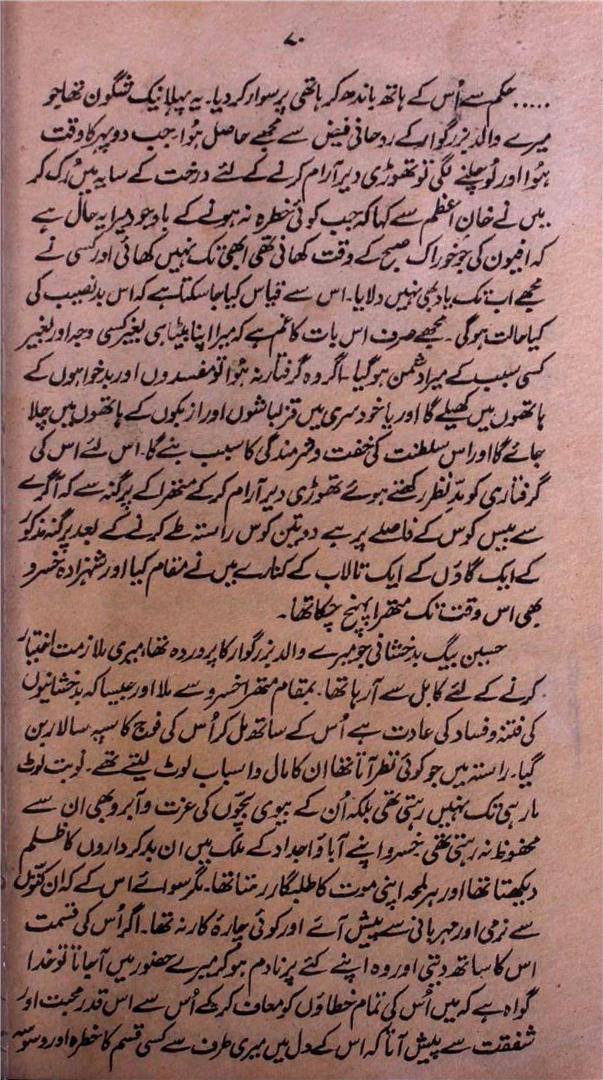 ۷۰
..... حکم سے اُس کے ہاتھ باندھ کر ہاتھی پر سوار کر دیا۔ یہ پہلا نیک شگون تھا جو
میرے والد بزرگوار کے روحانی فیض سے مجھے حاصل ہُوا۔ جب دوپہر کا وقت
ہُوا اور لُو چلنے لگی تو تھوڑی دیر آرام کرنے کے لئے درخت کے سایہ میں رُک کر
میں نے خان اعظم سے کہا کہ جب کوئی خطرہ نہ ہونے کے باوجود میرا یہ حال ہے
کہ افیون کی جو خوراک صبح کے وقت کھانی تھی ابھی تک نہیں کھائی اور کسی نے
مجھے اب تک یاد بھی نہیں دلایا۔ اس سے قیاس کیا جا سکتا ہے کہ اس بدنصیب کی
کیا حالت ہوگی۔ مجھے صرف اس بات کا غم ہے کہ میرا اپنا بیٹا ہی بغیر کسی وجہ اور بغیر
کسی سبب کے میرا دشمن ہوگیا۔ اگر وہ گرفتار نہ ہُوا تو مفسدوں اور بدخواہوں کے
ہاتھوں میں کھیلے گا اور یا خود سری میں قزلباشوں اور ازبکوں کے ہاتھوں میں چلا
جائے گا اور اس سلطنت کی خفت و شرمندگی کا سبب بنے گا۔ اس لئے اس کی
گرفتاری کو مدِّنظر رکھتے ہوئے تھوڑی دیر آرام کر کے متھرا کے پرگنہ سے کہ آگرے
سے بیس کوس کے فاصلے پر ہے دو تین کوس راستہ طے کرنے کے بعد پرگنہ مذکور
کے ایک گاؤں کے ایک تالاب کے کنارے میں نے مقام کیا اور شہزادہ خسرو
بھی اس وقت تک متھرا پہنچ چکا تھا۔
حسین بیگ بدخشانی جو میرے والد بزرگوار کا پروردہ تھا، میری ملازمت اختیار
کرنے کے لئے کابل سے آرہا تھا۔ بمقام متھرا خسرو سے ملا اور جیسا کہ بدخشانیوں
کی فتنہ و فساد کی عادت ہے اُس کے ساتھ مل کر اُس کی فوج کا سپہ سالار بن
گیا۔ راستہ میں جو کوئی نظر آتا تھا ان کا مال و اسباب لوٹ لیتے تھے۔ نوبت لوٹ
مار ہی تک نہیں رہتی تھی بلکہ اُن کے بیوی بچّوں کی عزت و آبرو بھی ان سے
محفوظ نہ رہتی تھی خسرو اپنے آبا و اجداد کے ملک میں ان بدکرداروں کا ظلم
دیکھتا تھا اور ہر لمحہ اپنی موت کا طلبگار رہتا تھا۔ مگر سوائے اس کے کہ ان
سے نرمی اور مہربانی سے پیش آئے اور کوئی چارۂ کار نہ تھا۔ اگر اُس کی قسمت
اس کا ساتھ دیتی اور وہ اپنے کئے پر نادم ہو کر میرے حضور میں آجاتا تو خدا
گواہ ہے کہ میں اُس کی تمام خطاؤں کو معاف کر کے اُس سے اس قدر محبت اور
شفقت سے پیش آتا کہ اس کے دل میں میری طرف سے کسی قسم کا خطرہ اور وسوسہ